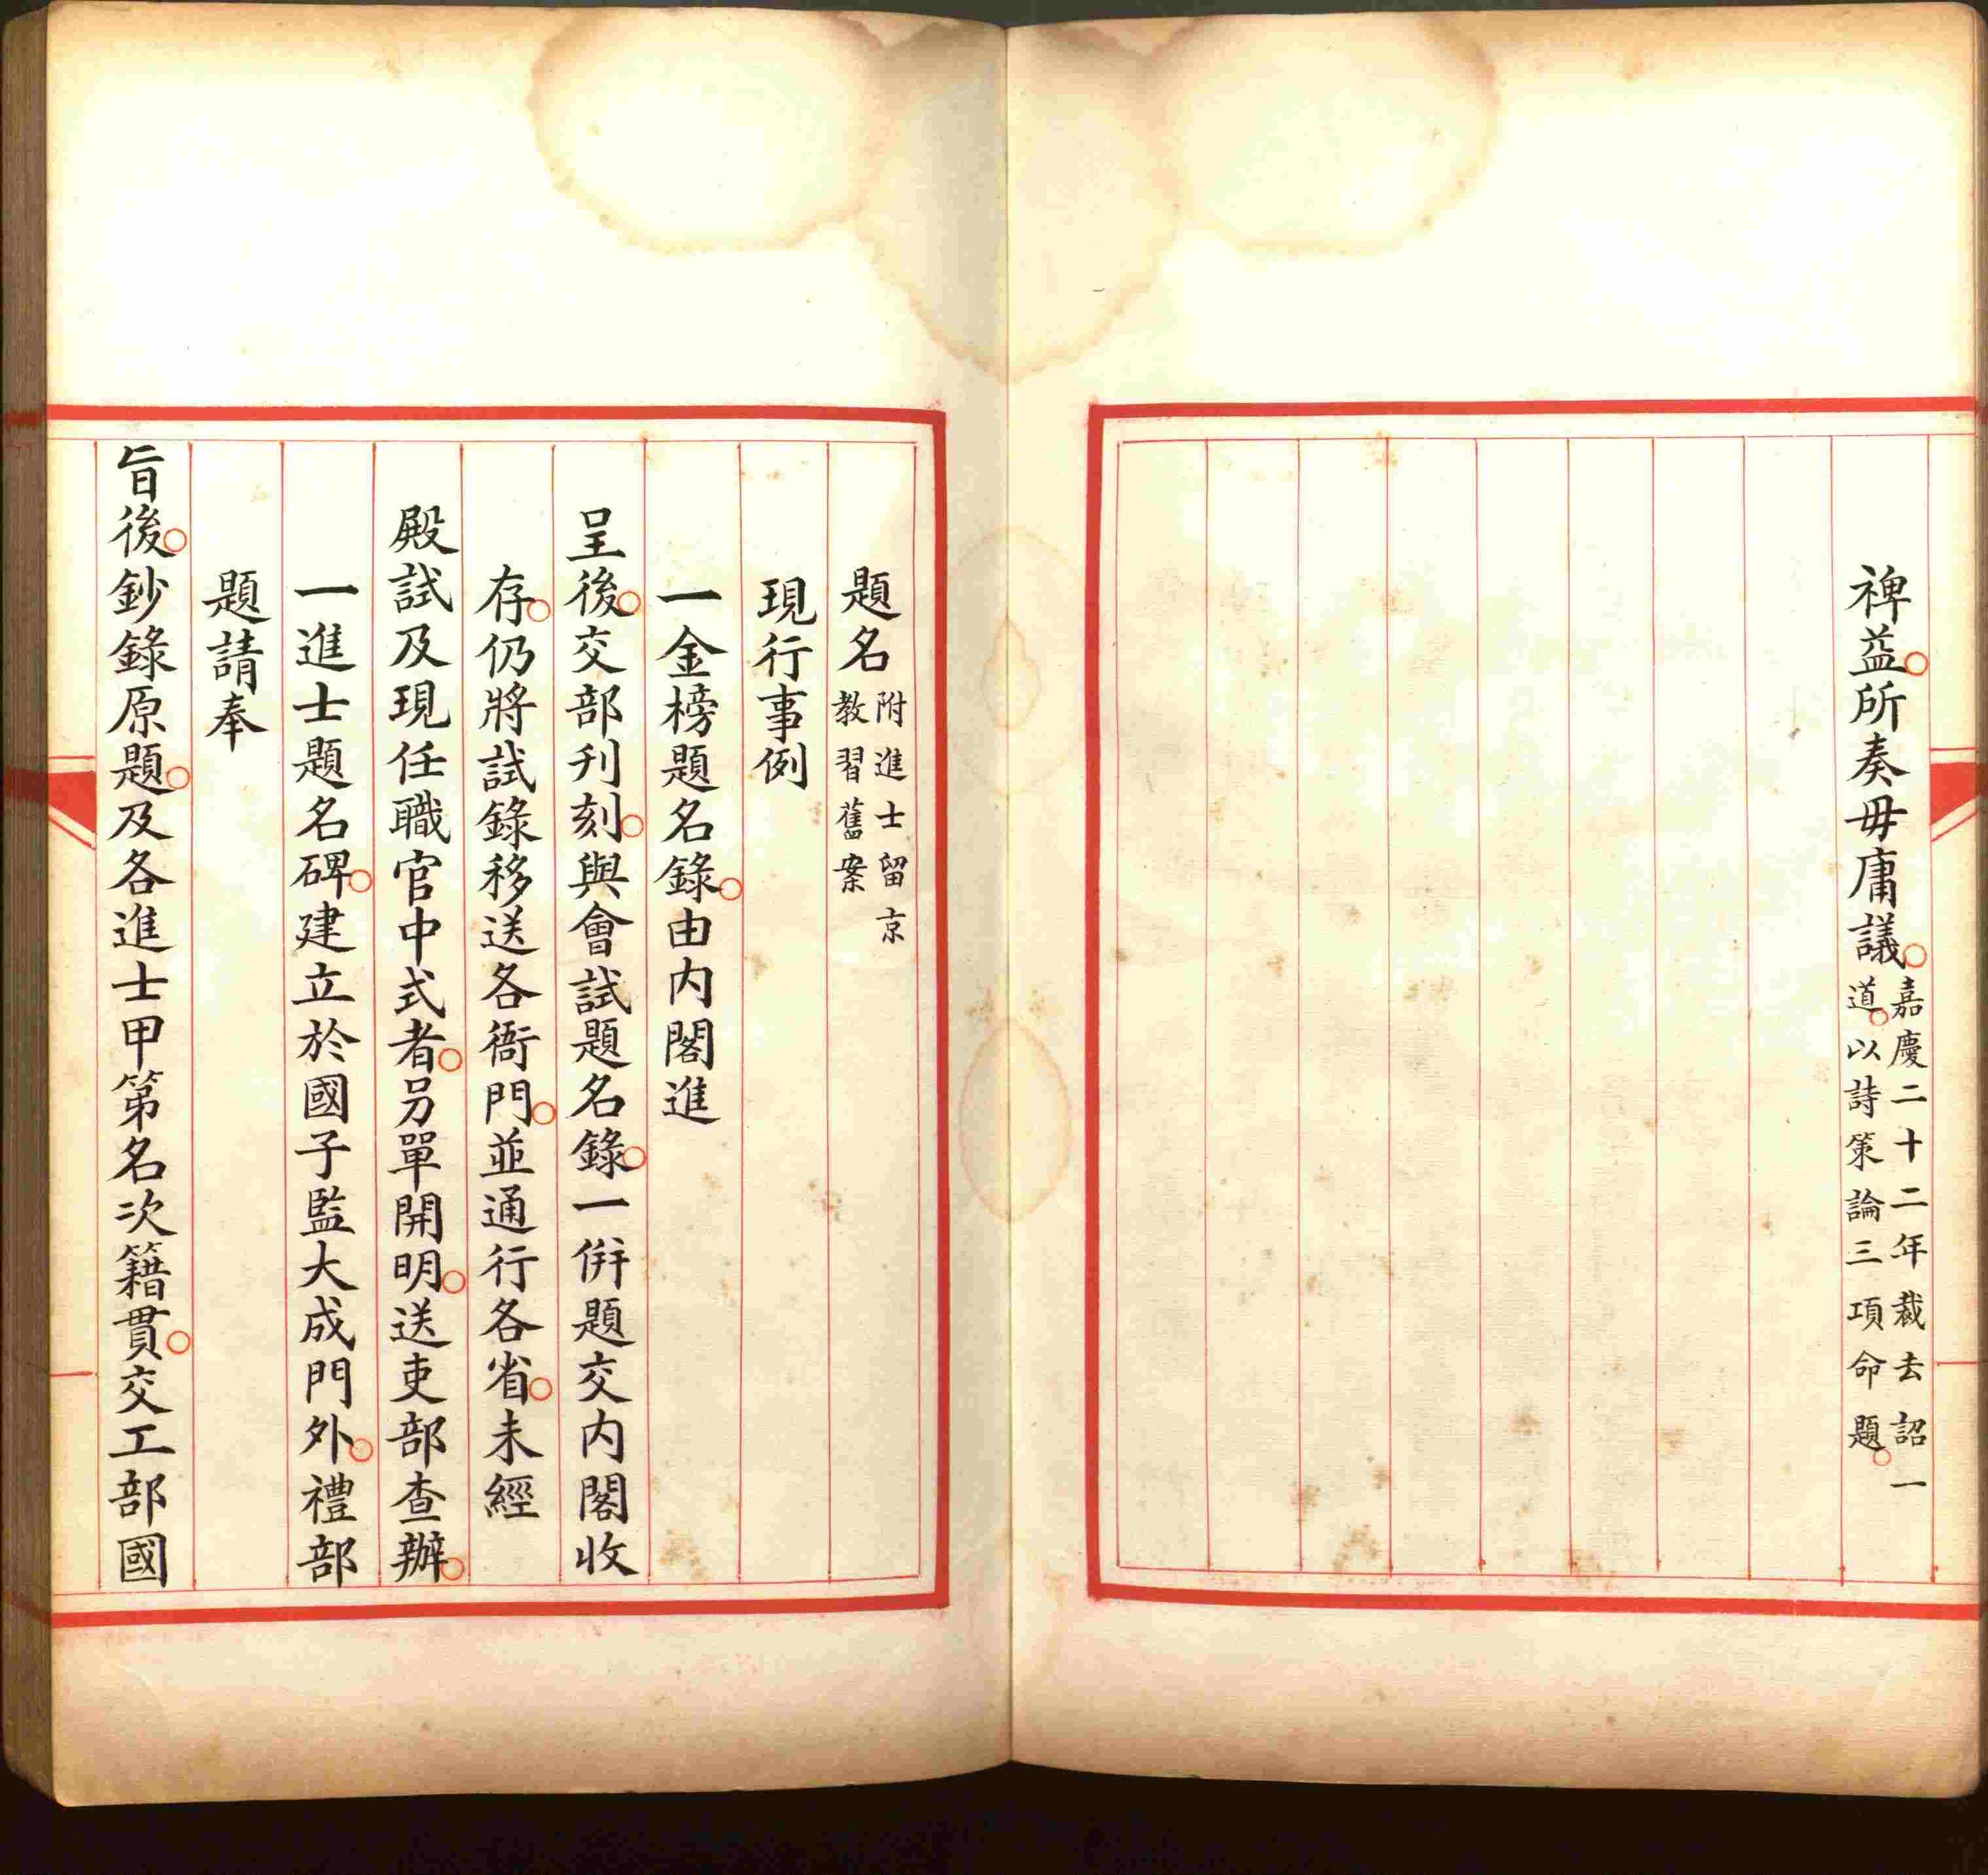 裨益所奏毋庸議嘉慶二十二年裁去詔一
道以詩策論三項命題
題名附進士留京
教習舊案
現行事例
一金榜題名錄由内閣進
呈後交部刋刻與會試題名錄一併題交内閣收
存仍將試錄移送各衙門並通行各省未經
殿試及現任職官中式者另單開明送吏部查辦
一進士題名碑建立於國子監大成門外禮部
題請奉
旨後鈔錄原題及各進士甲第名次籍貫交工部國